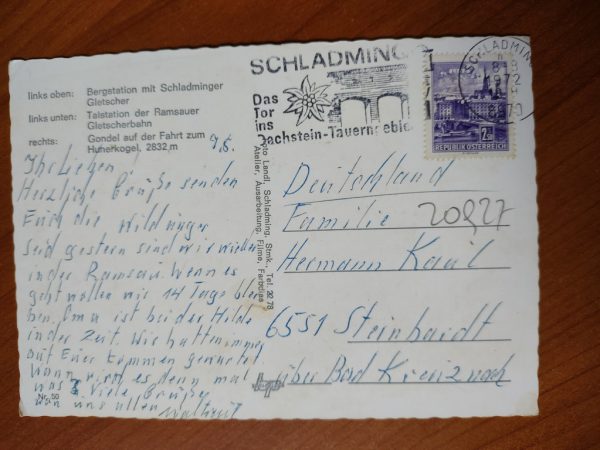 links oben: Bergstation mit Schladminger
Gletscher
links unten: Talstation der Ramsauer
Gletscherbahn
rechts: Gondel auf der Fahrt zum
Hunerkogel, 2832 m
9.8.
Ihr Lieben!
Herzliche Grüße senden
Euch die Wildinger
Seid gestern sind wir wieder
in der Ramsau. Wenn es
geht wollen wir 14 Tage blei
ben. Oma ist bei der Hilde
in der Zeit. Wir hatten immer
auf Euer kommen gewartet.
Wann wird es denn mal
was? Viele Grüße
von uns allen Waltraud
Nr. 56
Foto Lendl Schladming, Stmk., Tel. 22 78
Atelier, Ausarbeitung, Filme, Farbdias
SCHLADMING
Das
Tor
ins
Dachstein-Tauerngebiet
SCHLADMING
1972
8970
2.50
REPUBLIK ÖSTERREICH
Deutschland
Familie
20827
Hermann Kail
6551 Steinhardt
über Bad Kreuznach